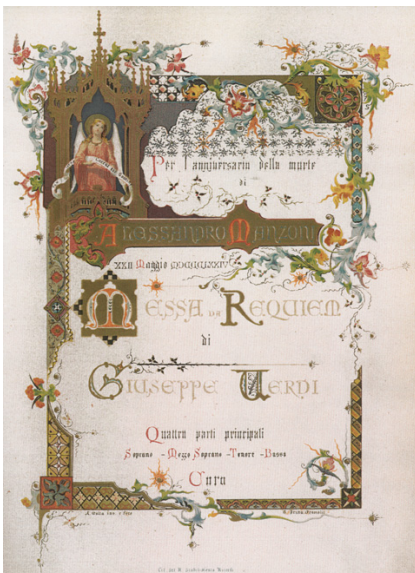 Per l'anniversario della morte
di
Alessandro Manzoni
XXII Maggio
Messa da Requiem
di
Giuseppe Verdi
Quattro parti principali
Soprano - Mezzo Soprano - Tenore - Basso
Coro